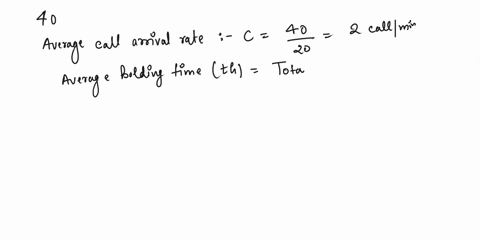 40
Average call arrival rate :- C = 40/20 = 2 call/min
Average holding time (th) = Tota